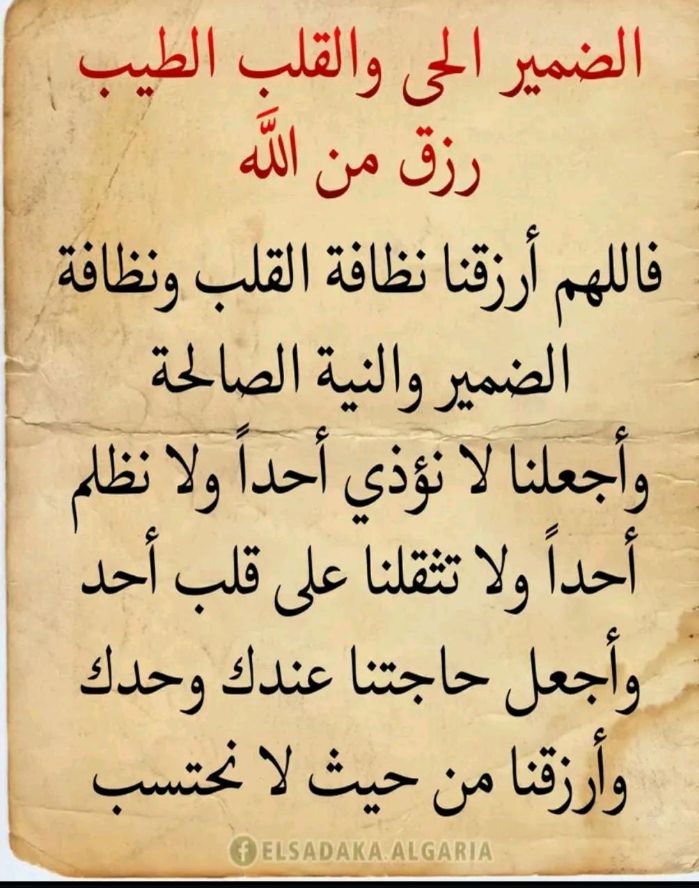 الضمير الحى والقلب الطيب
رزق من اللَّه
فاللهم أرزقنا نظافة القلب ونظافة
الضمير والنية الصالحة
وأجعلنا لا نؤذي أحداً ولا نظلم
أحداً ولا تثقلنا على قلب أحد
وأجعل حاجتنا عندك وحدك
وأرزقنا من حيث لا نحتسب
ELSADAKA.ALGARIA